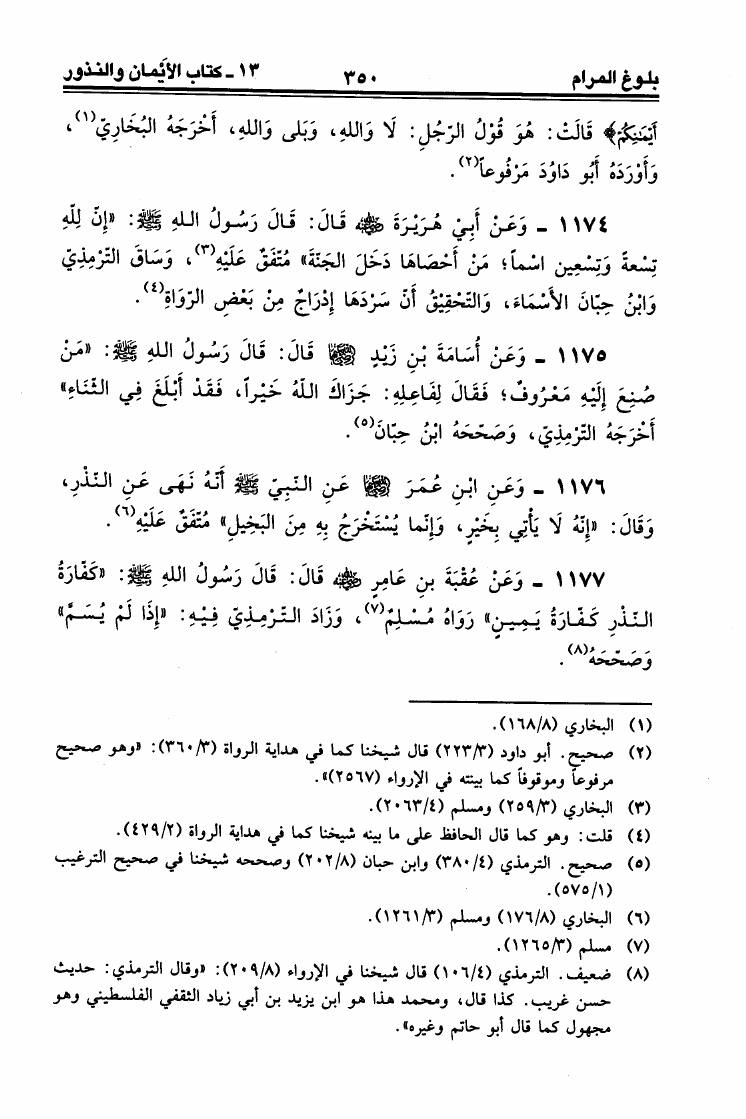 بلوغ المرام ٣٥٠ ١٣ - كتاب الأَيْمان والنذور
أَيْمَٰنِكُمْ﴾ قَالَتْ: هُوَ قَوْلُ الرَّجُلِ: لَا وَاللهِ، وَبَلى وَاللهِ، أَخْرَجَهُ البُخَارِيّ(١)،
وَأَوْرَدَهُ أَبُو دَاوُدَ مَرْفُوعاً(٢).
١١٧٤ - وَعَنْ أَبِيْ هُرَيْرَةَ ﷺ قَالَ: قَالَ رَسُولُ اللهِ ﷺ: «إِنّ لِلّهِ
تِسْعةً وَتِسْعِين اسْماً؛ مَنْ أَحْصَاهَا دَخَلَ الجَنّةَ» مُتّفَقٌ عَلَيْهِ(٣)، وَسَاقَ التّرْمِذِيّ
وَابْنُ حِبّانَ الأَسْمَاءَ، وَالتّحْقِيْقُ أَنّ سَرْدَهَا إِدْرَاجٌ مِنْ بَعْضِ الرّوَاةِ(٤).
١١٧٥ - وَعَنْ أُسَامَةَ بْنِ زَيْدٍ قَالَ: قَالَ رَسُولُ اللهِ ﷺ: «مَنْ
صُنِعَ إِلَيْهِ مَعْرُوفٌ؛ فَقَالَ لِفَاعِلِهِ: جَزَاكَ اللّهُ خَيْراً، فَقَدْ أَبْلَغَ فِي الثّنَاءِ»
أَخْرَجَهُ التّرْمِذِيّ، وَصَحّحَهُ ابْنُ حِبّانَ(٥).
١١٧٦ - وَعَنِ ابْنِ عُمَرَ عَنِ النّبِيّ ﷺ أَنّهُ نَهَى عَنِ النّذْرِ،
وَقَالَ: «إِنّهُ لَا يَأْتِي بِخَيْرٍ، وَإِنّما يُسْتَخْرَجُ بِهِ مِنَ البَخِيلِ» مُتّفَقٌ عَلَيْهِ(٦).
١١٧٧ - وَعَنْ عُقْبَةَ بنِ عَامِرٍ قَالَ: قَالَ رَسُولُ اللهِ ﷺ: «كَفّارَةُ
النّذْرِ كَفّارَةُ يَمِينٍ» رَوَاهُ مُسْلِمٌ(٧)، وَزَادَ التّرْمِذِيّ فِيْهِ: «إِذَا لَمْ يُسَمَّ»
وَصَحّحَهُ(٨).
(١) البخاري (١٦٨/٨).
(٢) صحيح. أبو داود (٢٢٣/٣) قال شيخنا كما في هداية الرواة (٣٦٠/٣): «وهو صحيح
مرفوعاً وموقوفاً كما بينته في الإرواء (٢٥٦٧)».
(٣) البخاري (٢٥٩/٣) ومسلم (٢٠٦٣/٤).
(٤) قلت: وهو كما قال الحافظ على ما بينه شيخنا كما في هداية الرواة (٤٢٩/٢).
(٥) صحيح. الترمذي (٣٨٠/٤) وابن حبان (٢٠٢/٨) وصححه شيخنا في صحيح الترغيب
(٥٧٥/١).
(٦) البخاري (١٧٦/٨) ومسلم (١٢٦١/٣).
(٧) مسلم (١٢٦٥/٣).
(٨) ضعيف. الترمذي (١٠٦/٤) قال شيخنا في الإرواء (٢٠٩/٨): «وقال الترمذي: حديث
حسن غريب. كذا قال، ومحمد هذا هو ابن يزيد بن أبي زياد الثقفي الفلسطيني وهو
مجهول كما قال أبو حاتم وغيره».